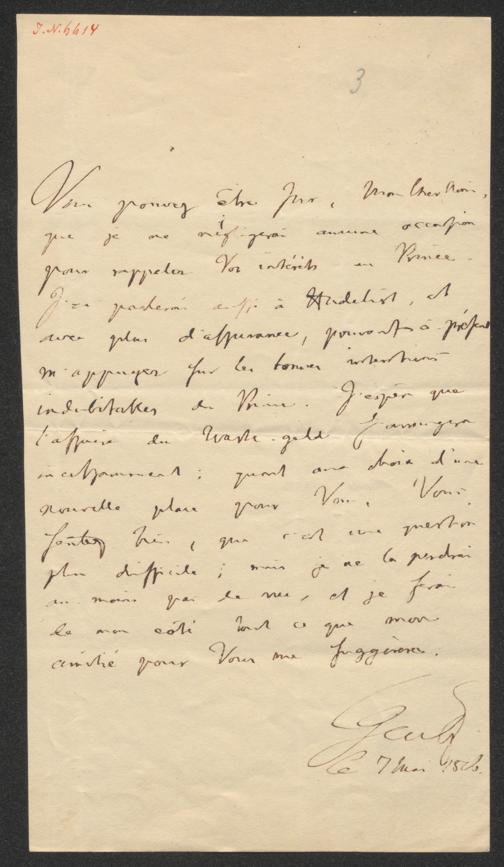 I.N. 6614
3
Vous pouvez être sur, mon cher
que je ne négligerai aucune occasion
pour rappeler Vos intérêts au Prince.
J'en parlerai aussi à Hudelist, et
avec plus d'assurance, pouvant à présent
m'appuyer sur les bonnes intentions
indubitables du Prince. J'espère que
l'affaire du Warte-geld s'arrangera
incessamment; quant au choix d'une
nouvelle place pour Vous, Vous
sentez bien, que c'est une question
plus difficile; mais je ne la perdrai
au moins pas de vue, et je ferai
de mon côté tout ce que mon
amitié pour Vous me suggérera.
Gentz
le 7 Mai